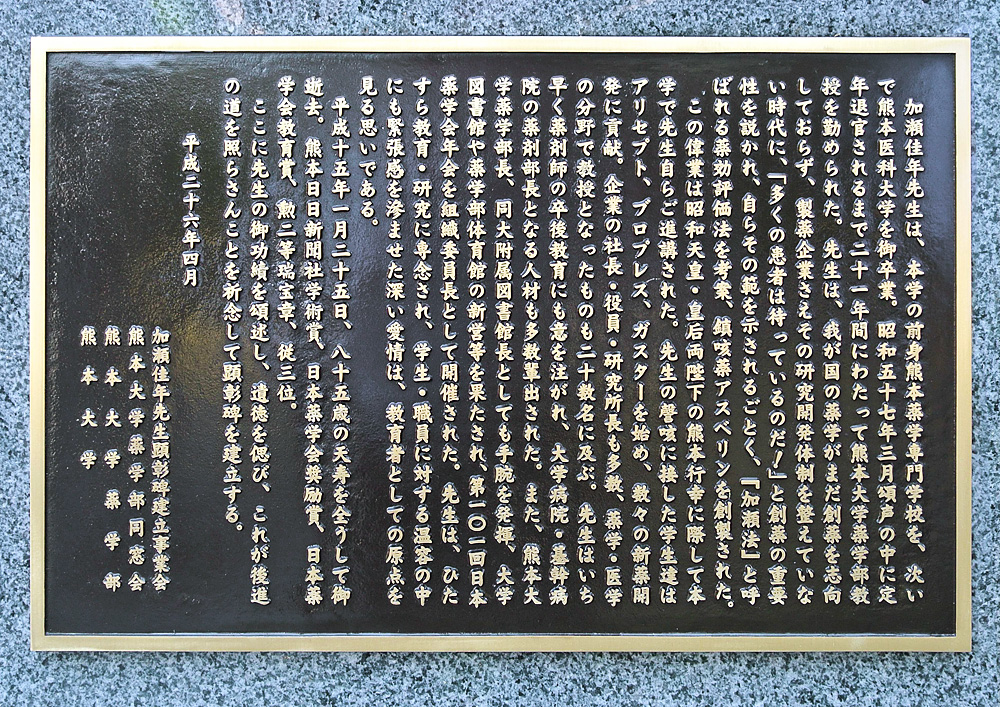 加瀬佳年先生は、本学の前身熊本薬学専門学校を、次い
で熊本医科大学を御卒業。昭和五十七年三月頌声の中に定
年退官されるまで二十一年間にわたって熊本大学薬学部教
授を勤められた。先生は、我が国の薬学がまだ創薬を志向
しておらず、製薬企業さえその研究開発体制を整えていな
い時代に、「多くの患者は待っているのだ！」と創薬の重要
性を説かれ、自らその範を示されるごとく、『加瀬法』と呼
ばれる薬効評価法を考案、鎮咳薬アスベリンを創製された。
この偉業は昭和天皇・皇后両陛下の熊本行幸に際して本
学で先生自らご進講された。先生の謦咳に接した学生達は
アリセプト、ブロプレス、ガスターを始め、数々の新薬開
発に貢献。企業の社長・役員・研究所長も多数、薬学・医学
の分野で教授となったものも二十数名に及ぶ。先生はいち
早く薬剤師の卒後教育にも意を注がれ、大学病院・基幹病
院の薬剤部長となる人材も多数輩出された。また、熊本大
学薬学部長、同大附属図書館長としても手腕を発揮、大学
図書館や薬学部体育館の新営等を果たされ、第一〇一回日本
薬学会年会を組織委員長として開催された。先生は、ひた
すら教育・研究に専念され、学生・職員に対する温容の中
にも緊張感を滲ませた深い愛情は、教育者としての原点を
見る思いである。
平成十五年一月二十五日、八十五歳の天寿を全うして御
逝去。熊本日日新聞社学術賞、日本薬学会奨励賞、日本薬
学会教育賞、勲二等瑞宝章、従三位。
ここに先生の御功績を頌述し、遺徳を偲び、これが後進
の道を照らさんことを祈念して顕彰碑を建立する。
平成二十六年四月
加瀬佳年先生顕彰碑建立事業会
熊本大学薬学部同窓会
熊本大学薬学部
熊本大学